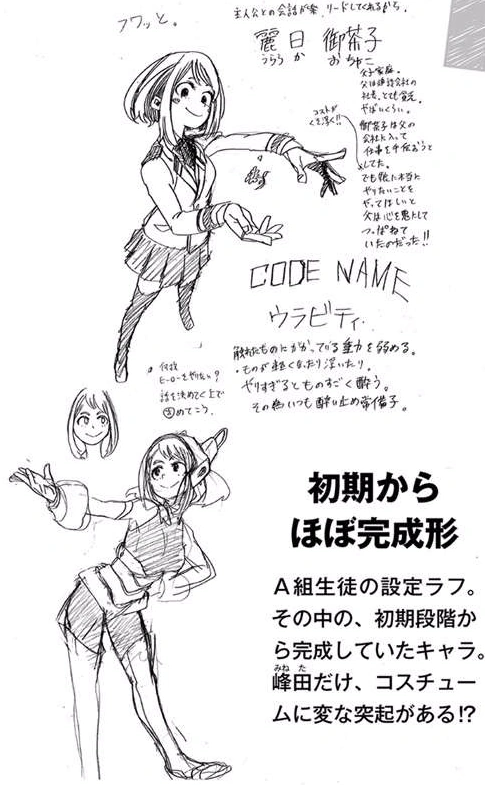 フワッと。
主人公との会話が楽、リードしてくれるから。
麗日 御茶子
うらら か お ちゃこ
父子家庭。
父は建設会社の
社長、とても貧乏。
やばいくらい。
コストが
くそ浮く!!
御茶子は父の
会社に入って
仕事を手伝おうと
してた。
でも娘に本当に
やりたいことを
やってほしいと
父は心を鬼にして
つっぱねて
いたのだった!!
CODE NAME
ウラビティ.
触れたものにかかっている重力を弱める。
・ものが軽くなったり浮いたり。
やりすぎるとものすごく酔う。
その為いつも酔い止め常備子。
・何故
ヒーローをやりたい?
話を決めてく上で
めてこう。
初期から
ほぼ完成形
A組生徒の設定ラフ。
その中の、初期段階か
ら完成していたキャラ。
みね た
峰田だけ、コスチュー
ムに変な突起がある!?